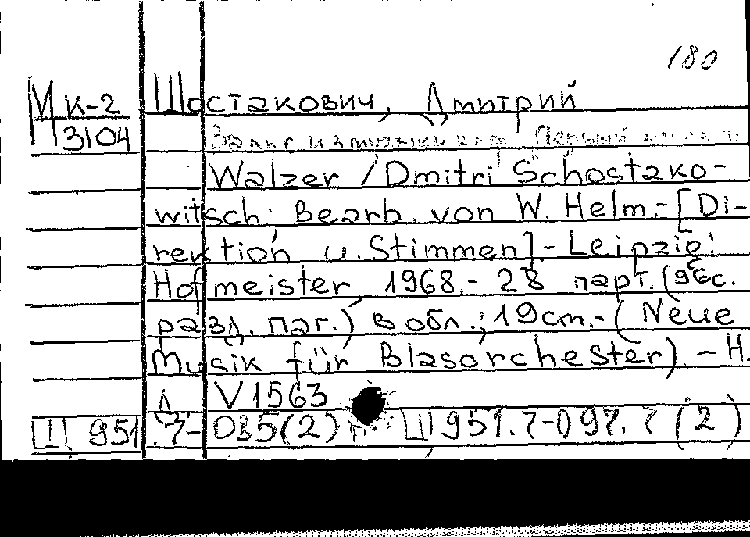 180
МК-2 Шостакович, Дмитрий
3104 Вальс из
Walzer / Dmitri Schostako-
witsch; Bearb. von W. Helm.- [Di-
rektion u. Stimmen] - Leipzig:
Hofmeister 1968.- 28 парт. (96с.
разд. паг.) в обл.; 19cm.- (Neue
Musik für Blasorchester) - H.
V1563
Ш 951.7-035(2) Ш951.7-097.7 (2)